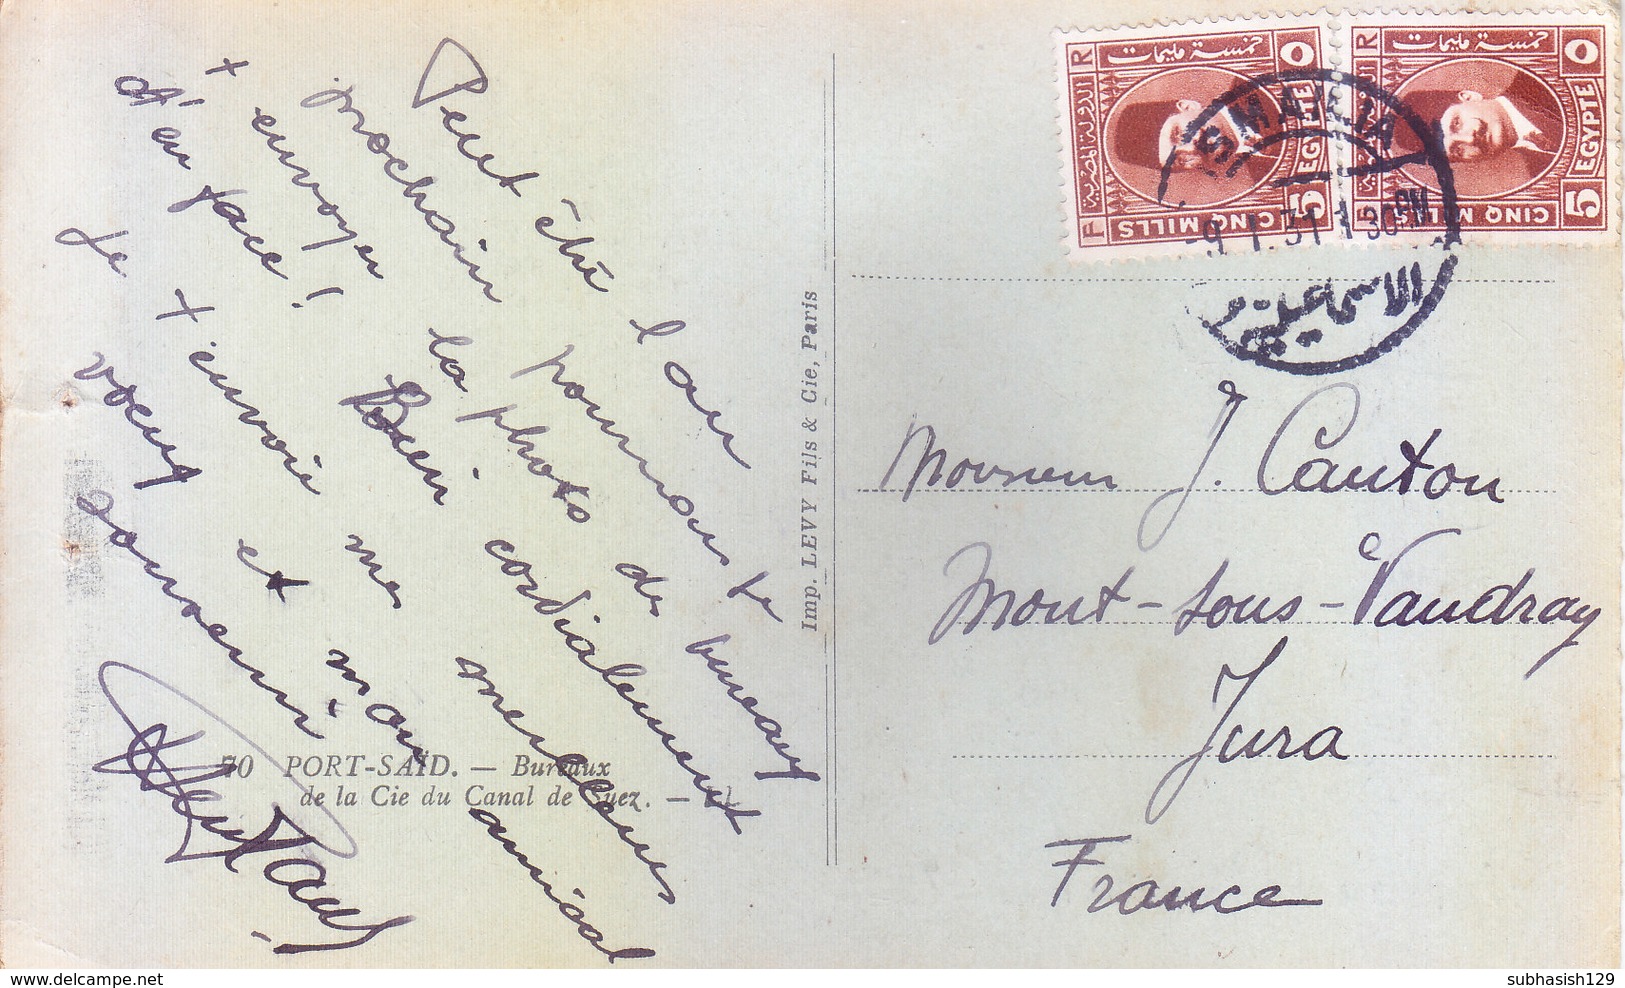 Peut être l'an
prochain pourrons te
+ envoyer la photo de bureau
d'en face!
Bien cordialement
je t'envoie mes meilleurs
voeux et mon amical
souvenir
Paul
70 PORT-SAÏD. — Bureaux
de la Cie du Canal de Suez. —
Imp. LEVY Fils & Cie, Paris
R خمسة مليمات ٥
الدولة المصرية
EGYPTE
F CINQ MILLS 5
R خمسة مليمات ٥
EGYPTE
CINQ MILLS 5
ISMAILIA
-9 I. 31 1 30 PM
الاسماعيلية
Monsieur J. Canton
Mont-sous-Vaudrey
Jura
France
subhasish129